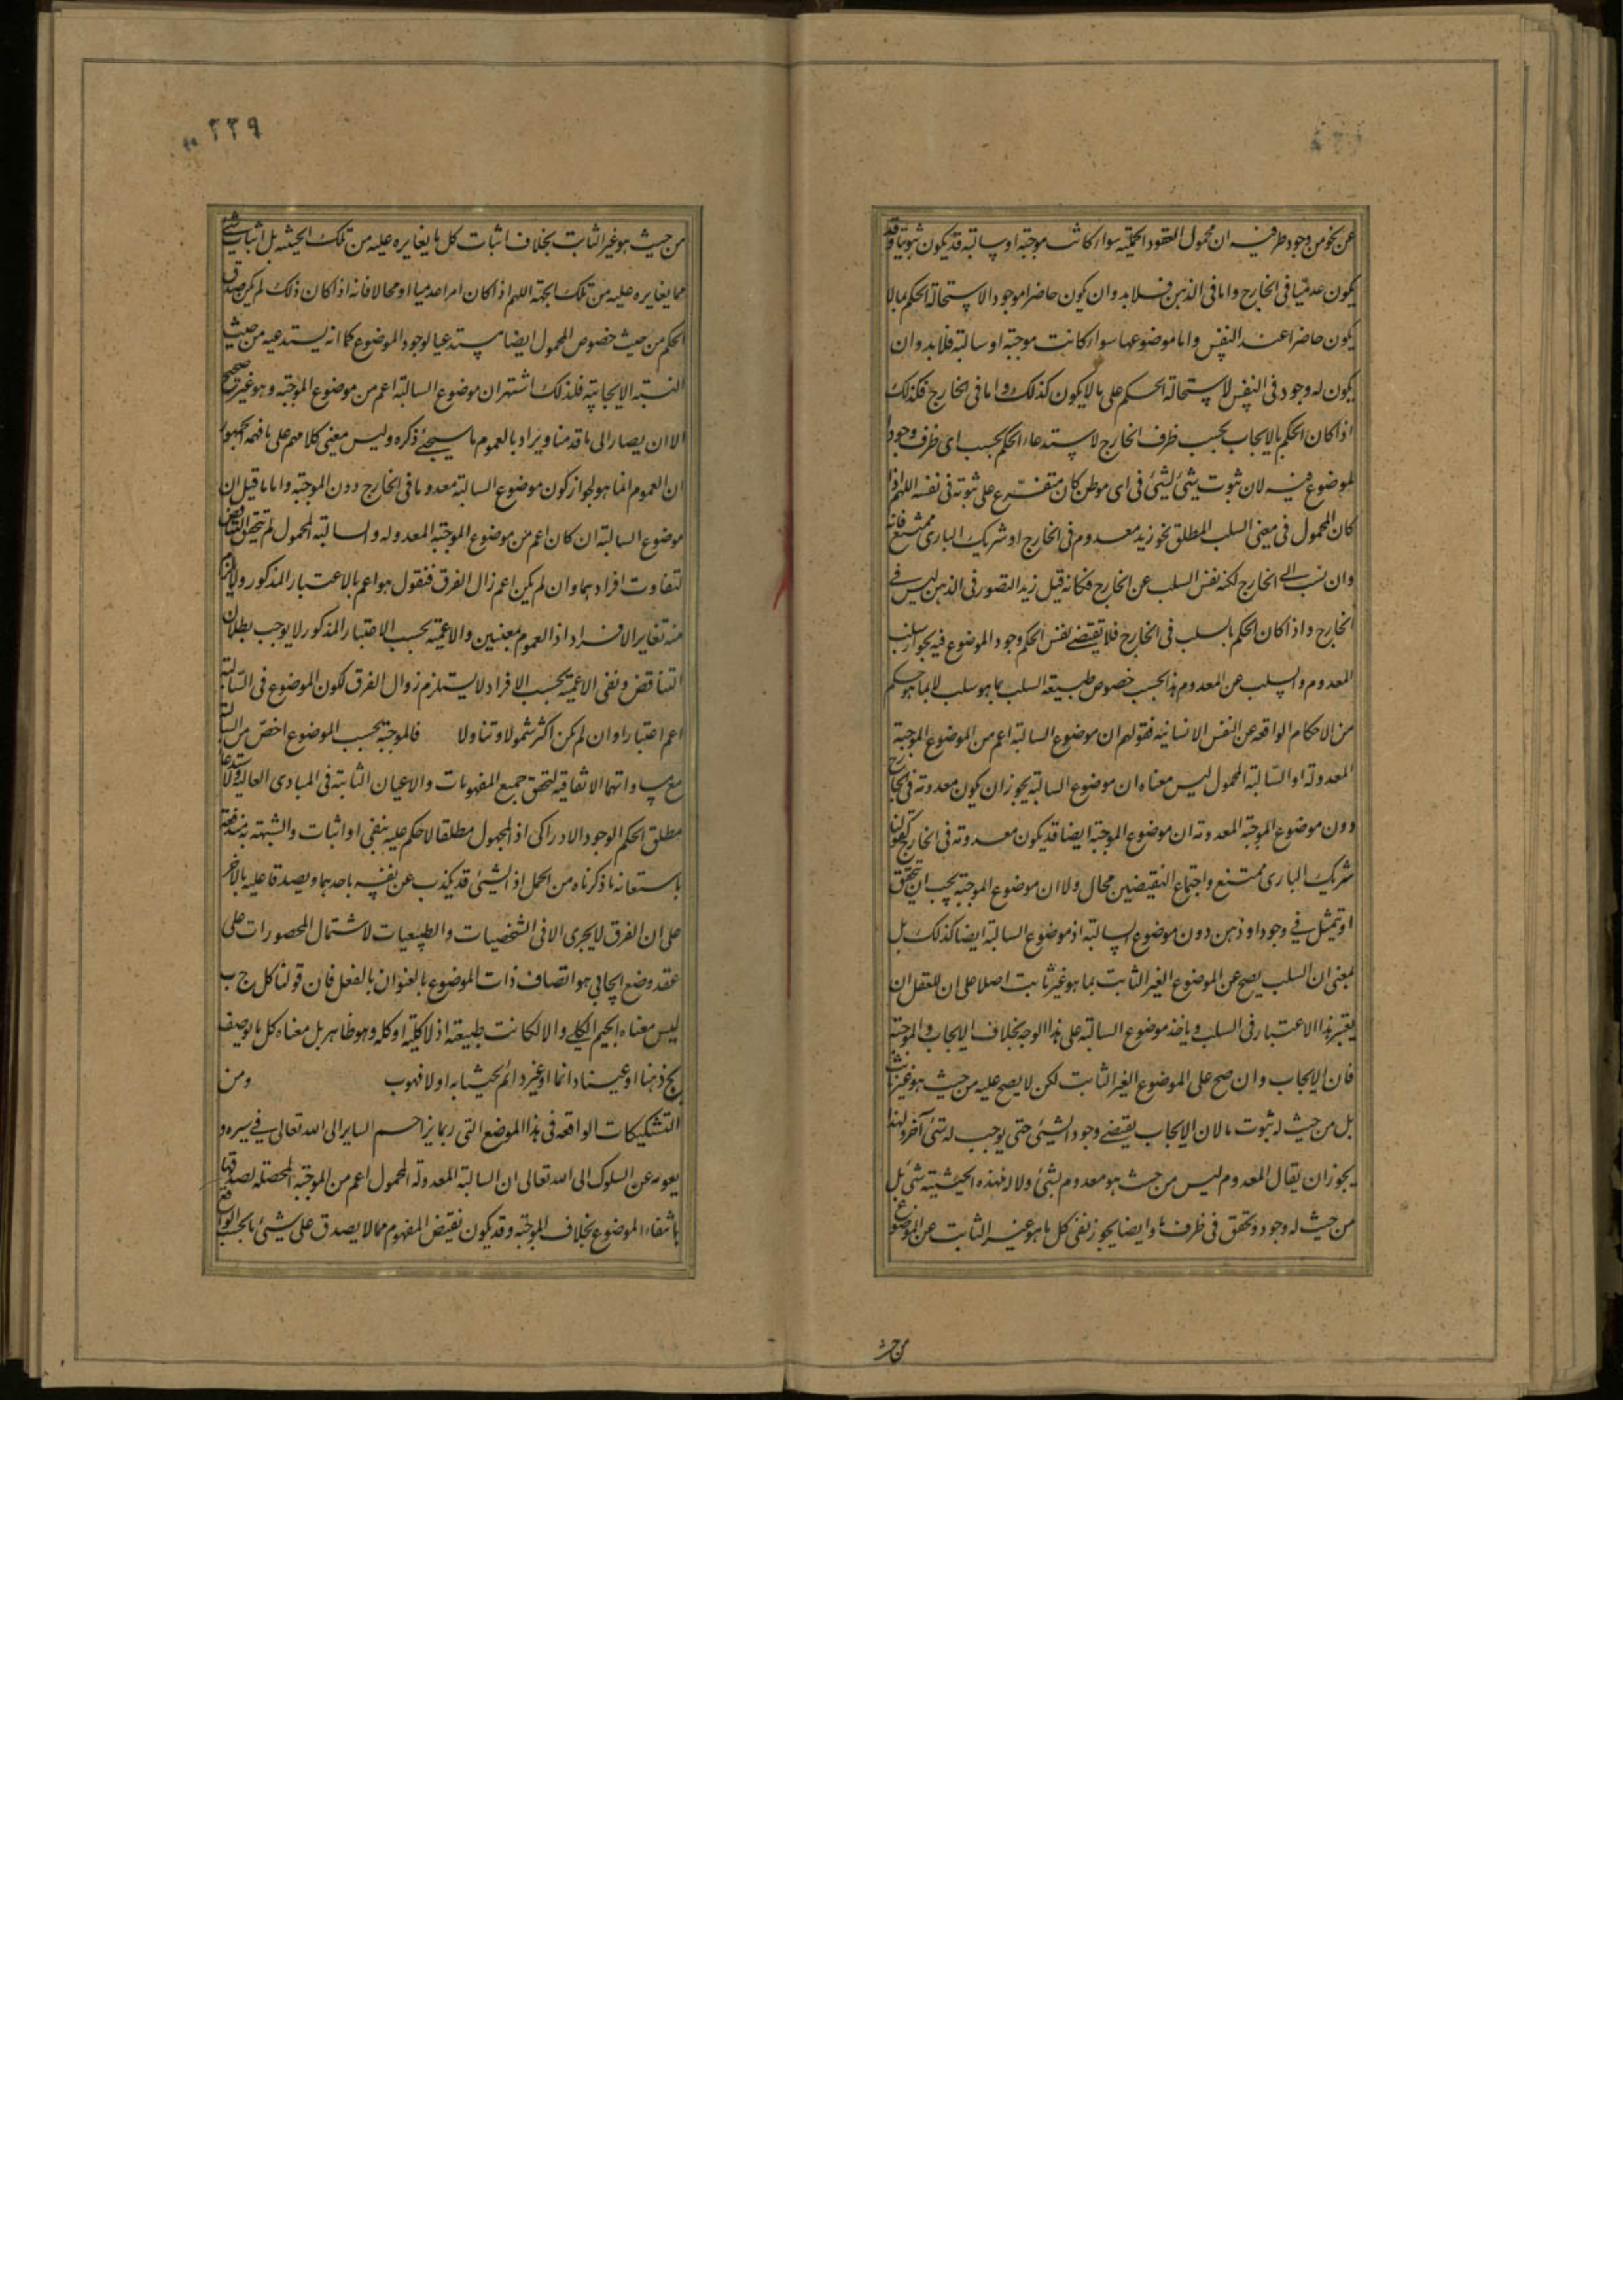 عن نحو من وجود طرفيه ان محمول العقود الحملية سواء كانت موجبة او سالبة قد يكون ثبوتيا وقد
يكون عدميا في الخارج واما في الذهن فلا بد وان يكون حاضرا موجودا لاستحالة الحكم بما لا
يكون حاضرا عند النفس واما موضوعها سواء كانت موجبة او سالبة فلا بد وان
يكون له وجود في النفس لاستحالة الحكم على ما لا يكون كذلك واما في الخارج فكذلك
اذا كان الحكم بالايجاب بحسب ظرف الخارج لاستدعاء الحكم بحسب اى ظرف وجود
الموضوع فيه لان ثبوت شئ لشئ في اى موطن كان متفرع على ثبوته في نفسه اللهم اذا
كان المحمول في معنى السلب المطلق نحو زيد معدوم في الخارج او شريك البارى ممتنع فانه
وان نسب الى الخارج لكنه نفس السلب عن الخارج فكانه قيل زيد المتصور في الذهن ليس في
الخارج واذا كان الحكم بالسلب في الخارج فلا يقتضى نفس الحكم وجود الموضوع فيه بجواز سلب
المعدوم والسلب عن المعدوم هذا بحسب خصوص طبيعة السلب بما هو سلب لا بما هو حكم
من الاحكام الواقعه عن النفس الانسانيه فقولهم ان موضوع السالبة اعم من الموضوع الموجبة
المعدولة او السالبة المحمول ليس معناه ان موضوع السالبة يجوز ان يكون معدوته في الخارج
دون موضوع الموجبة المعدوته ان موضوع الموجبة ايضا قد يكون معدوته في الخارج كقولنا
شريك البارى ممتنع واجتماع النقيضين محال ولا ان موضوع الموجبة يجب ان يتحقق
او يتمثل في وجود او ذهن دون موضوع السالبة اذ موضوع السالبة ايضا كذلك بل
بمعنى ان السلب يصح عن الموضوع الغير الثابت بما هو غير ثابت اصلا على ان للعقل ان
يعتبر هذا الاعتبار في السلب وياخذ موضوع السالبة على هذا الوجه بخلاف الايجاب والموجبة
فان الايجاب وان صح على الموضوع الغير الثابت لكن لا يصح عليه من حيث هو غير ثابت
بل من حيث له ثبوت ما لان الايجاب يقتضى وجود الشئ حتى يوجب له شئ آخر ولهذا
يجوز ان يقال المعدوم ليس من حيث هو معدوم بشئ ولا له فهذه الحيثيته شئ بل
من حيث له وجود وتحقق في ظرف ما وايضا يجوز نفى كل ما هو غير الثابت عن الموضوع
من حيث
٢٢٩
من حيث هو غير الثابت بخلاف اثبات كل ما يغايره عليه من تلك الحيثيه بل اثبات شئ
مما يغايره عليه من تلك الجهة اللهم اذا كان امرا عدميا او محالا فانه اذا كان ذلك لم يكن صدق
الحكم من حيث خصوص المحمول ايضا مستدعيا لوجود الموضوع كما انه يستدعيه من حيث
النسبة الايجابية فلذلك اشتهر ان موضوع السالبة اعم من موضوع الموجبة وهو غير صحيح
الا ان يصار الى ما قدمنا ويراد بالعموم ما سيجئ ذكره وليس معنى كلامهم على ما فهمه الجمهور
ان العموم انما هو لجواز كون موضوع السالبة معدوما في الخارج دون الموجبة واما ما قيل ان
موضوع السالبة ان كان اعم من موضوع الموجبة المعدوله والسالبة المحمول لم يتحقق التناقض
لتفاوت افرادهما وان لم يكن اعم زال الفرق فنقول هو اعم بالاعتبار المذكور ولا يلزم
منه تغاير الافراد اذ العموم بمعنيين والاعمية بحسب الاعتبار المذكور لا يوجب بطلان
التناقض ونفى الاعمية بحسب الافراد لا يستلزم زوال الفرق لكون الموضوع في السالبة
اعم اعتبارا وان لم يكن اكثر شمولا وتناولا فالموجبة بحسب الموضوع اخص من السالبة
مع مساواتهما الاتفاقية لتحقق جميع المفهومات والاعيان الثابتة في المبادى العالية ولاستدعاء
مطلق الحكم الوجود الادراكى اذ المجهول مطلقا لا حكم عليه بنفى او اثبات والشبهة به مندفعة
باستعانه ما ذكرناه من الحمل اذ الشئ قد يكذب عن نفسه باحدهما ويصدقا عليه بالاخر
على ان الفرق لا يجرى الا في الشخصيات والطبيعيات لاشتمال المحصورات على
عقد وضع ايجابي هو اتصاف ذات الموضوع بالعنوان بالفعل فان قولنا كل ج ب
ليس معناه الجيم الكلى والا لكانت طبيعة اذ لا كلية او كله وهو ظاهر بل معناه كل ما يوصف
بج ذهنا او عينا دائما او غير دائم بحيثا به او لا فهو ب ومن
التشكيكات الواقعه في هذا الموضع التى ربما يزاحم الساير الى الله تعالى في سيره و
يعوقه عن السلوك الى الله تعالى ان السالبة المعدولة المحمول اعم من الموجبة المحصلة لصدقها
بانتفاء الموضوع بخلاف الموجبة وقد يكون نقيض المفهوم مما لا يصدق على شئ ما بحسب الواقع